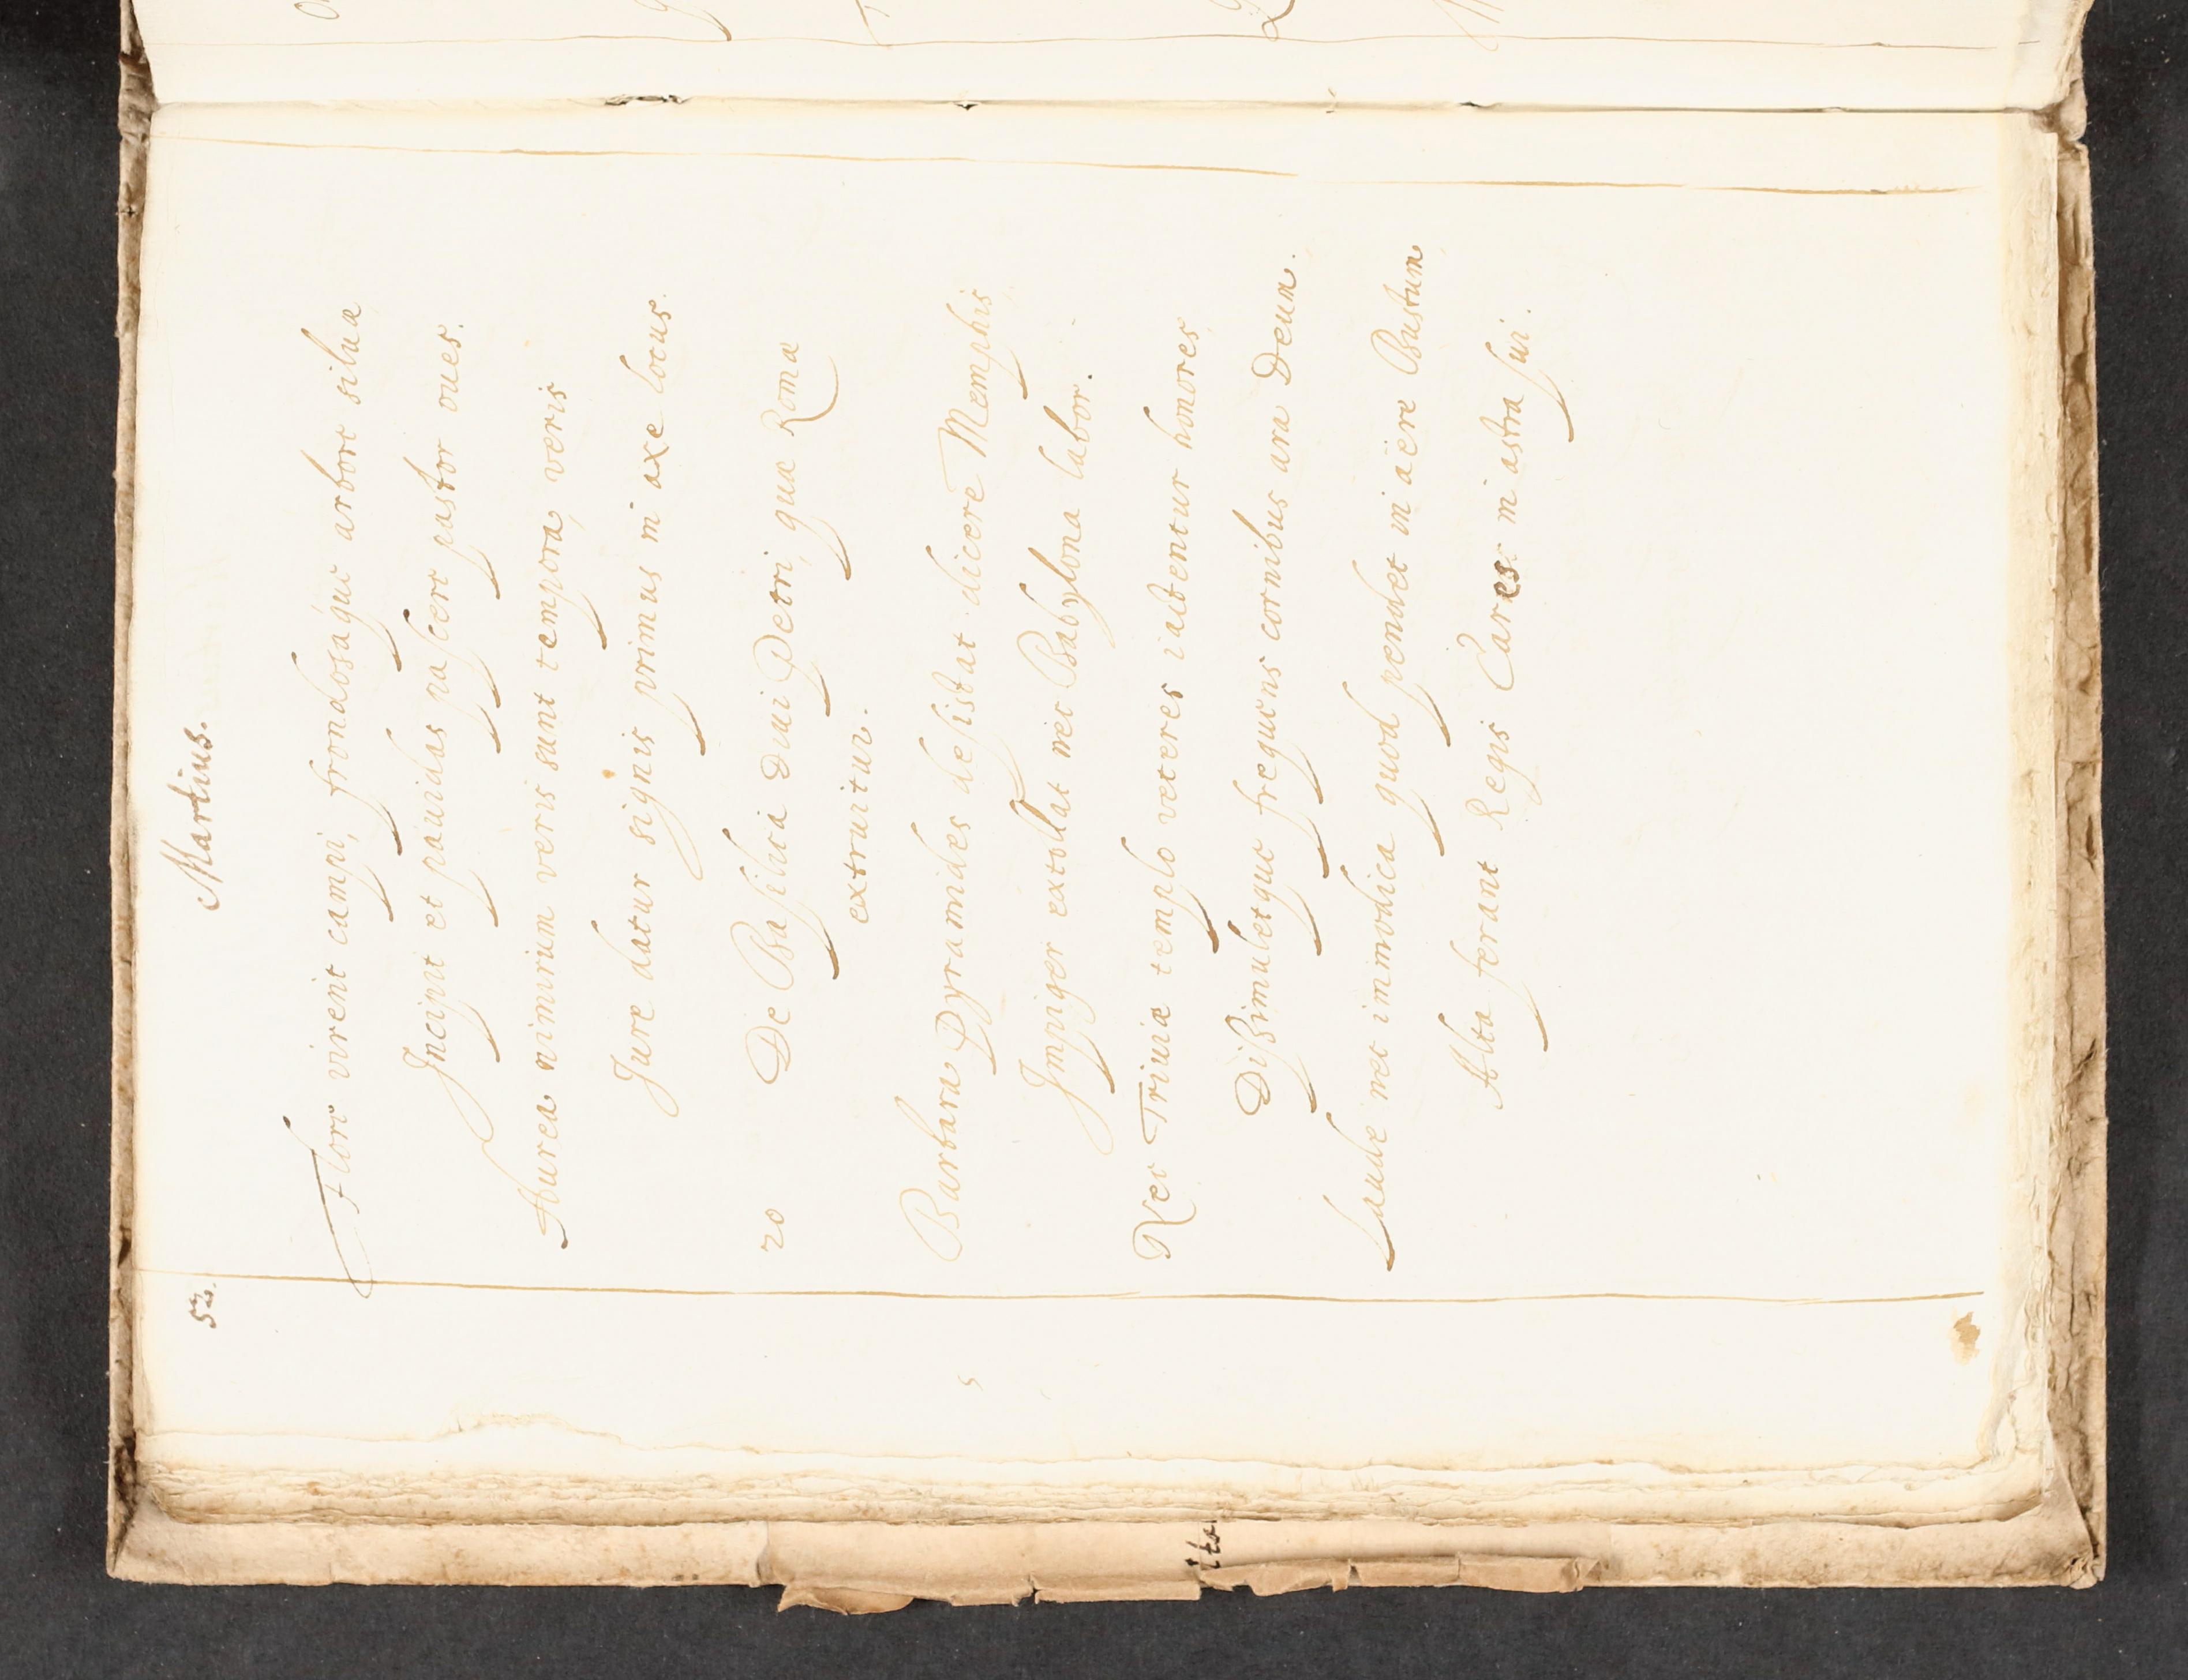 52.
Martius.
Flore virent campi, frondosaque arbore siluæ
Incipit et pauidas pascere pastor oues.
Aurea nimirum veris sunt tempora, veris
Jure datur signis primus in axe locus.
20 De Basilica Diui Petri, quæ Romæ
extruitur.
Barbara Pyramides desistat dicere Memphis
Impiger extollat nec Babylona labor.
Nec Triuiæ templo veteres iactentur honores
Dißimuletque frequens cornibus ara Deum.
Laude nec immodica quod pendet in aëre Bustum
Alta ferant Regis Cares in astra sui.